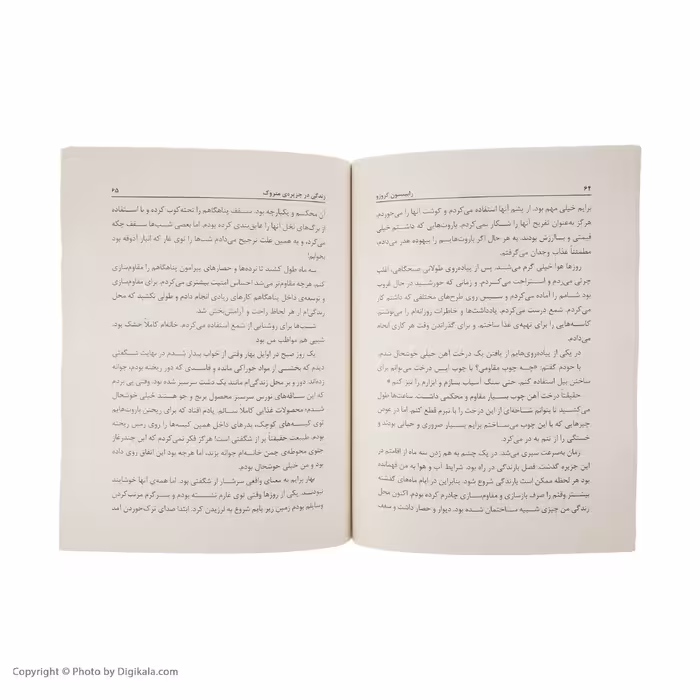 رابینسون کروزو ۶۴
برایم خیلی مهم بود. از پشم آنها استفاده می‌کردم و گوشت آنها را می‌خوردم.
هرگز به‌عنوان تفریح آنها را شکار نمی‌کردم. باروت‌هایی که داشتم خیلی
قیمتی و باارزش بودند. به هر حال اگر باروت‌هایم را بیهوده هدر می‌دادم،
مطمئناً عذاب وجدان می‌گرفتم.
روزها هوا خیلی گرم می‌شد. پس از پیاده‌روی طولانی صبحگاهی، اغلب
چرتی می‌زدم و استراحت می‌کردم. و زمانی که خورشید در حال غروب
بود شامم را آماده می‌کردم و سپس روی طرح‌های مختلفی که داشتم کار
می‌کردم. شمع درست می‌کردم. یادداشت‌ها و خاطرات روزانه‌ام را می‌نوشتم.
کاسه‌هایی را برای تهیه‌ی غذا ساختم. و برای گذراندن وقت هر کاری انجام
می‌دادم.
در یکی از پیاده‌روی‌هایم از یافتن یک درخت آهن خیلی خوشحال شدم.
با خودم گفتم: «چه چوب مقاومی! با چوب این درخت می‌توانم برای
ساختن بیل استفاده کنم. حتی سنگ آسیاب بسازم و ابزارم را تیز کنم.»
حقیقتاً درخت آهن چوب بسیار مقاوم و محکمی داشت. ساعت‌ها طول
می‌کشید تا بتوانم شاخه‌ای از این درخت را با تبرم قطع کنم. اما در عوض
چیزهایی که با این چوب می‌ساختم برایم بسیار ضروری و حیاتی بودند و
خستگی را از تنم به در می‌کرد.
زمان به‌سرعت سپری می‌شد. در یک چشم به هم زدن سه ماه از اقامتم در
این جزیره گذشت. فصل بارندگی در راه بود. شرایط آب و هوا به من فهمانده
بود هر لحظه ممکن است بارندگی شروع شود. بنابراین در ایام ماه‌های گذشته
بیشتر وقتم را صرف بازسازی و مقاوم‌سازی چادرم کرده بودم. اکنون محل
زندگی من چیزی شبیه به ساختمان شده بود. دیوار و حصار داشت و سقف
زندگی در جزیره‌ی متروک ۶۵
آن محکم و یکپارچه بود. سقف پناهگاهم را تخته‌کوب کرده و با استفاده
از برگ‌های نخل آنها را عایق‌بندی کرده بودم. اما بعضی شب‌ها سقف چکه
می‌کرد، و به همین علت ترجیح می‌دادم شب‌ها را توی غار که انبار آذوقه بود
بخوابم!
سه ماه طول کشید تا نرده‌ها و حصارهای پیرامون پناهگاهم را مقاوم‌سازی
کنم. هرچه مقاوم‌تر می‌شد احساس امنیت بیشتری می‌کردم. برای مقاوم‌سازی
و توسعه‌ی داخل پناهگاهم کارهای زیادی انجام دادم و طولی نکشید که محل
زندگی‌ام از هر لحاظ راحت و آرامش‌بخش شد.
شب‌ها برای روشنایی از شمع استفاده می‌کردم. خانه‌ام کاملاً خشک بود.
شیبی هم مواظب من بود.
یک روز صبح در اوایل بهار وقتی از خواب بیدار شدم در نهایت شگفتی
دیدم که بخشی از مواد خوراکی مانده و فاسدی که دور ریخته بودم، جوانه
زده‌اند. دور و بر محل زندگی‌ام مانند یک دشت سرسبز شده بود. وقتی پی بردم
که این ساقه‌های نورس سرسبز محصول برنج و جو هستند خیلی خوشحال
شدم؛ محصولات غذایی کاملا سالم. یادم افتاد که برای ریختن باروت‌هایم
توی کیسه‌های کوچک، بذرهای داخل همین کیسه‌ها را روی زمین ریخته
بودم. طبیعت حقیقتاً پر از شگفتی است! هرگز فکر نمی‌کردم که این چندرغاز
جلوی محوطه‌ی چمن خانه‌ام جوانه بزند، اما هرچه بود این اتفاق روی داده
بود و من خیلی خوشحال بودم.
بهار برایم به معنای واقعی سرشار از شگفتی بود. اما همه‌ی آنها خوشایند
نبودند. یکی از روزها وقتی توی غارم نشسته بودم و سرگرم مرتب‌کردن
وسایلم بودم زمین زیر پایم شروع به لرزیدن کرد. ابتدا صدای ترک‌خوردن آمد
Copyright © Photo by Digikala.com